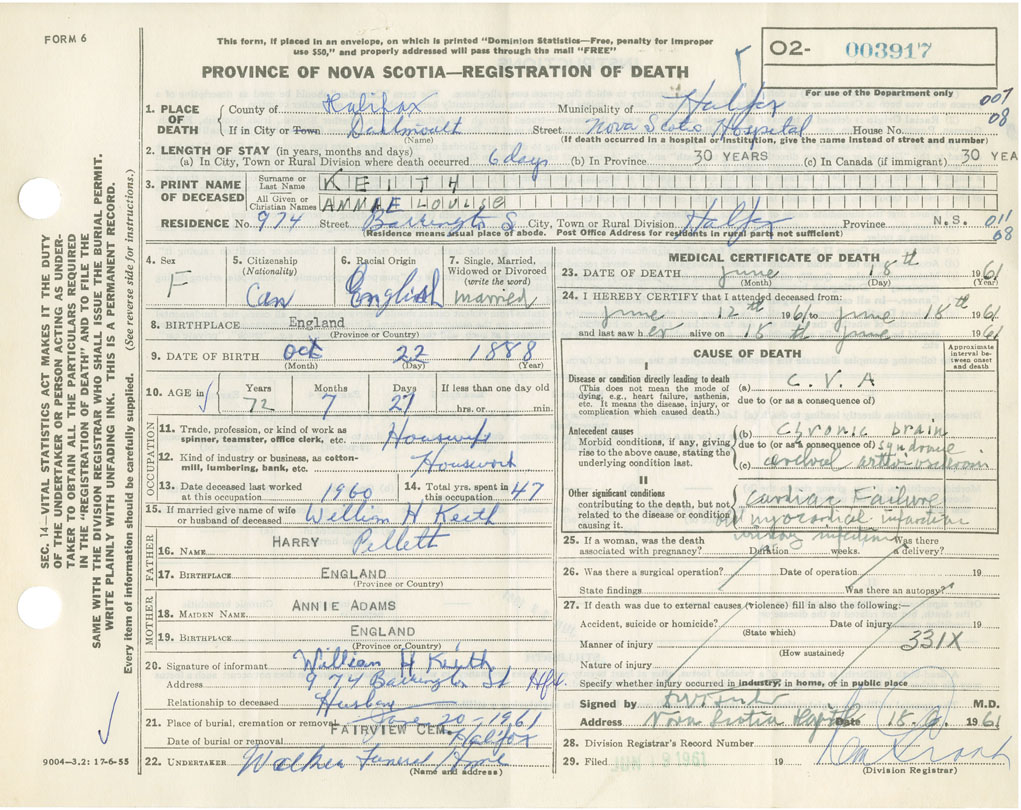 FORM 6
This form, if placed in an envelope, on which is printed "Dominion Statistics—Free, penalty for improper
use $50," and properly addressed will pass through the mail "FREE"
O2- 003917
PROVINCE OF NOVA SCOTIA—REGISTRATION OF DEATH
For use of the Department only
1. PLACE OF DEATH
County of Halifax Municipality of Halifax 007
08
If in City or Town Dartmouth Street Nova Scotia Hospital House No.
(Name) (If death occurred in a hospital or institution, give the name instead of street and number)
2. LENGTH OF STAY (in years, months and days)
(a) In City, Town or Rural Division where death occurred 6 days (b) In Province 30 YEARS (c) In Canada (if immigrant) 30 YEA
3. PRINT NAME OF DECEASED
Surname or Last Name KEITH
All Given or Christian Names ANNIE LOUISE
RESIDENCE No. 974 Street Barrington S City, Town or Rural Division Halifax Province N.S. 011
08
(Residence means usual place of abode. Post Office Address for residents in rural parts not sufficient)
4. Sex F
5. Citizenship (Nationality) Can
6. Racial Origin English
7. Single, Married, Widowed or Divorced (write the word) married
8. BIRTHPLACE England
(Province or Country)
9. DATE OF BIRTH Oct 22 1888
(Month) (Day) (Year)
10. AGE in Years 72 Months 7 Days 27 If less than one day old hrs. or min.
OCCUPATION
11. Trade, profession, or kind of work as spinner, teamster, office clerk, etc. Housewife
12. Kind of industry or business, as cotton-mill, lumbering, bank, etc. Housework
13. Date deceased last worked at this occupation 1960
14. Total yrs. spent in this occupation 47
15. If married give name of wife or husband of deceased William H Keith
FATHER
16. NAME HARRY Pellett
17. BIRTHPLACE ENGLAND
(Province or Country)
MOTHER
18. MAIDEN NAME ANNIE ADAMS
19. BIRTHPLACE ENGLAND
(Province or Country)
20. Signature of informant William H Keith
Address 974 Barrington St Hfx.
Relationship to deceased Husban
21. Place of burial, cremation or removal FAIRVIEW CEM. Halifax
Date of burial or removal June 20-1961
22. UNDERTAKER Walker Funeral Home
(Name and address)
MEDICAL CERTIFICATE OF DEATH
23. DATE OF DEATH June 18th 1961
(Month) (Day) (Year)
24. I HEREBY CERTIFY that I attended deceased from:
June 12th 1961 to June 18th 1961
and last saw her alive on 18th June 1961
CAUSE OF DEATH
Approximate interval between onset and death
I
Disease or condition directly leading to death
(This does not mean the mode of dying, e.g., heart failure, asthenia, etc. It means the disease, injury, or complication which caused death.)
(a) C.V.A
due to (or as a consequence of)
Antecedent causes
Morbid conditions, if any, giving rise to the above cause, stating the underlying condition last.
(b) Chronic brain
due to (or as a consequence of) syndrome
(c)
II
Other significant conditions
contributing to the death, but not related to the disease or condition causing it.
Cardiac Failure
old myocardial infarction
urinary infection
25. If a woman, was the death associated with pregnancy? Duration weeks. Was there a delivery?
26. Was there a surgical operation? Date of operation 19
State findings Was there an autopsy?
27. If death was due to external causes (violence) fill in also the following:—
Accident, suicide or homicide? Date of injury 19
(State which)
Manner of injury 331X
(How sustained)
Nature of injury
Specify whether injury occurred in industry, in home, or in public place
Signed by M.D.
Address Nova Scotia Hospital Date 18.6. 1961
28. Division Registrar's Record Number
29. Filed JUN 19 1961 19
(Division Registrar)
SEC. 14—VITAL STATISTICS ACT MAKES IT THE DUTY
OF THE UNDERTAKER OR PERSON ACTING AS UNDER-
TAKER TO OBTAIN ALL THE PARTICULARS REQUIRED
IN THE "REGISTRATION OF DEATH" AND TO FILE THE
SAME WITH THE DIVISION REGISTRAR WHO SHALL ISSUE THE BURIAL PERMIT.
WRITE PLAINLY WITH UNFADING INK. THIS IS A PERMANENT RECORD.
Every item of information should be carefully supplied. (See reverse side for instructions.)
9004-3.2: 17-6-55